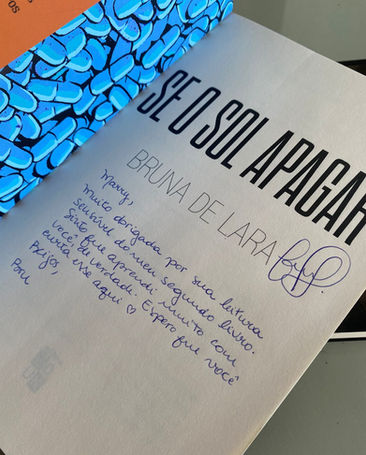 SE O SOL APAGAR
BRUNA DE LARA
Marry,
muito obrigada por sua leitura
sensível do meu segundo livro.
Sinto que aprendi muito com
você, de verdade. Espero que você
curta esse aqui ♡
Beijos,
Bru